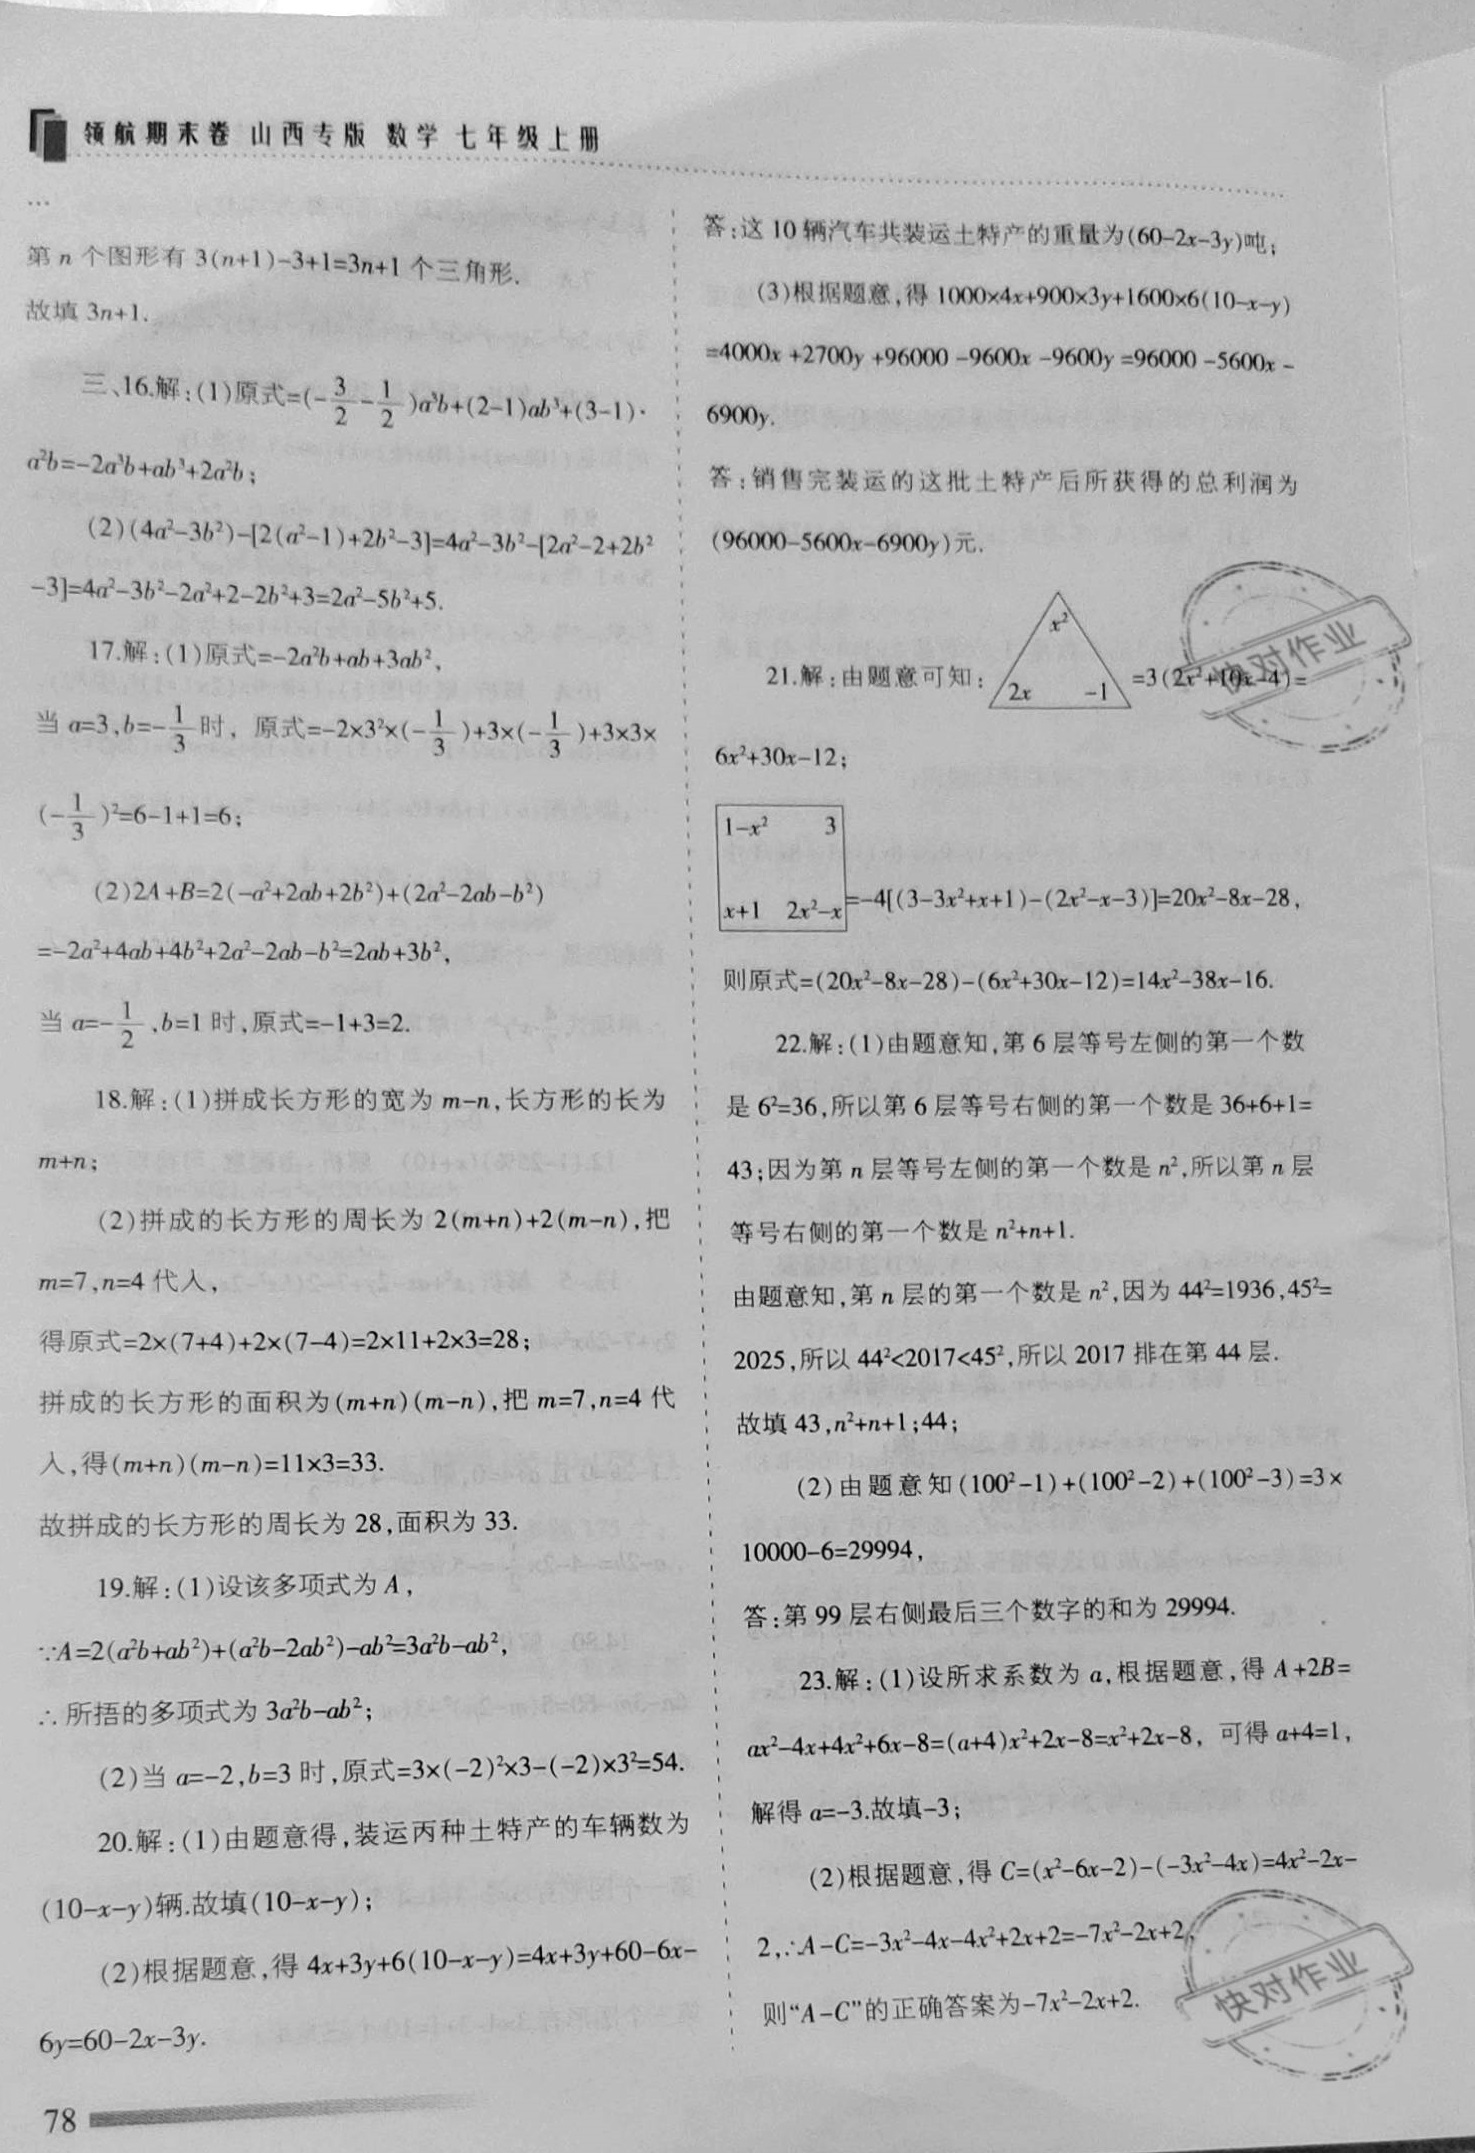 领航期末卷 山西专版 数学 七年级上册
…
第 n 个图形有 3(n+1)-3+1=3n+1 个三角形.
故填 3n+1.
三、16.解:(1)原式=(-3/2-1/2)a³b+(2-1)ab³+(3-1)·
a²b=-2a³b+ab³+2a²b;
(2)(4a²-3b²)-[2(a²-1)+2b²-3]=4a²-3b²-[2a²-2+2b²
-3]=4a²-3b²-2a²+2-2b²+3=2a²-5b²+5.
17.解:(1)原式=-2a²b+ab+3ab²,
当 a=3,b=-1/3时, 原式=-2×3²×(-1/3)+3×(-1/3)+3×3×
(-1/3)²=6-1+1=6;
(2)2A+B=2(-a²+2ab+2b²)+(2a²-2ab-b²)
=-2a²+4ab+4b²+2a²-2ab-b²=2ab+3b²,
当 a=-1/2,b=1 时,原式=-1+3=2.
18.解:(1)拼成长方形的宽为 m-n,长方形的长为
m+n;
(2)拼成的长方形的周长为 2(m+n)+2(m-n),把
m=7,n=4 代入,
得原式=2×(7+4)+2×(7-4)=2×11+2×3=28;
拼成的长方形的面积为(m+n)(m-n),把 m=7,n=4 代
入,得(m+n)(m-n)=11×3=33.
故拼成的长方形的周长为 28,面积为 33.
19.解:(1)设该多项式为 A,
∵A=2(a²b+ab²)+(a²b-2ab²)-ab²=3a²b-ab²,
∴所捂的多项式为 3a²b-ab²;
(2)当 a=-2,b=3 时,原式=3×(-2)²×3-(-2)×3²=54.
20.解:(1)由题意得,装运丙种土特产的车辆数为
(10-x-y)辆.故填(10-x-y);
(2)根据题意,得 4x+3y+6(10-x-y)=4x+3y+60-6x-
6y=60-2x-3y.
78
答:这 10 辆汽车共装运土特产的重量为(60-2x-3y)吨;
(3)根据题意,得 1000×4x+900×3y+1600×6(10-x-y)
=4000x+2700y+96000-9600x-9600y=96000-5600x-
6900y.
答:销售完装运的这批土特产后所获得的总利润为
(96000-5600x-6900y)元.
x²
21.解:由题意可知: 2x -1 =3(2x²+10x-4)=
6x²+30x-12;
1-x² 3
x+1 2x²-x =-4[(3-3x²+x+1)-(2x²-x-3)]=20x²-8x-28,
则原式=(20x²-8x-28)-(6x²+30x-12)=14x²-38x-16.
22.解:(1)由题意知,第 6 层等号左侧的第一个数
是 6²=36,所以第 6 层等号右侧的第一个数是 36+6+1=
43;因为第 n 层等号左侧的第一个数是 n²,所以第 n 层
等号右侧的第一个数是 n²+n+1.
由题意知,第 n 层的第一个数是 n²,因为 44²=1936,45²=
2025,所以 44²<2017<45²,所以 2017 排在第 44 层.
故填 43,n²+n+1;44;
(2)由题意知(100²-1)+(100²-2)+(100²-3)=3×
10000-6=29994,
答:第 99 层右侧最后三个数字的和为 29994.
23.解:(1)设所求系数为 a,根据题意,得 A+2B=
ax²-4x+4x²+6x-8=(a+4)x²+2x-8=x²+2x-8, 可得 a+4=1,
解得 a=-3.故填-3;
(2)根据题意,得 C=(x²-6x-2)-(-3x²-4x)=4x²-2x-
2,∴A-C=-3x²-4x-4x²+2x+2=-7x²-2x+2,
则“A-C”的正确答案为-7x²-2x+2.
快对作业
快对作业